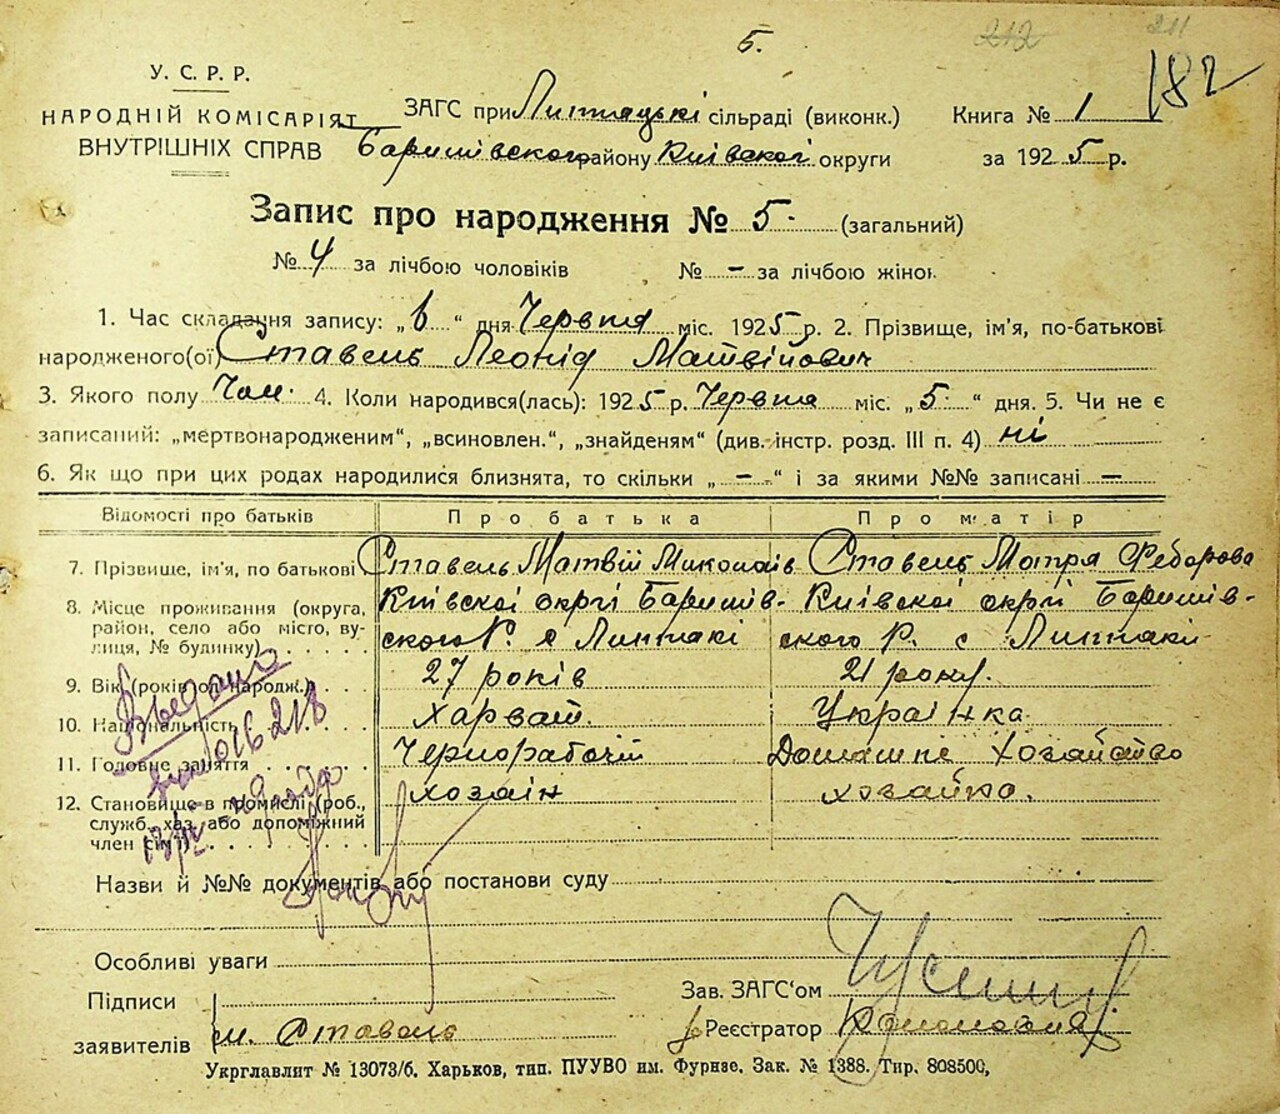 5.
212
211
182
У. С. Р. Р.
НАРОДНІЙ КОМІСАРІЯТ
ВНУТРІШНІХ СПРАВ
ЗАГС при Липняцькі сільраді (виконк.)
Баришівского району Київскої округи
Книга № 1
за 1925 р.
Запис про народження № 5. (загальний)
№ 4 за лічбою чоловіків № - за лічбою жінок
1. Час складання запису: „6“ дня Червня міс. 1925 р. 2. Прізвище, ім'я, по-батькові
народженого(ої) Ставень Леонід Матвійович
3. Якого полу Чол. 4. Коли народився(лась): 1925 р. Червня міс. „5“ дня. 5. Чи не є
записаний: „мертвонародженим“, „всиновлен.“, „знайденям“ (див. інстр. розд. III п. 4) ні
6. Як що при цих родах народилися близнята, то скільки „-“ і за якими №№ записані -
Відомості про батьків Про батька Про матір
7. Прізвище, ім'я, по батькові Ставень Матвій Миколаїв Ставень Мотря Федорова
8. Місце проживання (округа, Київскої окрги Баришів- Київскої окрги Баришів-
район, село або місто, ву- ского Р. с Липняки ского Р. с Липняки
лиця, № будинку)
9. Вік (років од народж.) 27 років 21 року.
10. Національність Харват. Українка
11. Головне заняття Чернорабочій Домашнє Хозайство
12. Становище в промислі (роб., хозаін хозайка.
служб. хаз. або допоміжний
член сім'ї)
Назви й №№ документів або постанови суду
Особливі уваги
Підписи
заявителів м. Ставень
Зав. ЗАГС‘ом
Реєстратор
Укрглавлит № 13073/б. Харьков, тип. ПУУВО им. Фрунзе. Зак. № 1388. Тир. 808500,